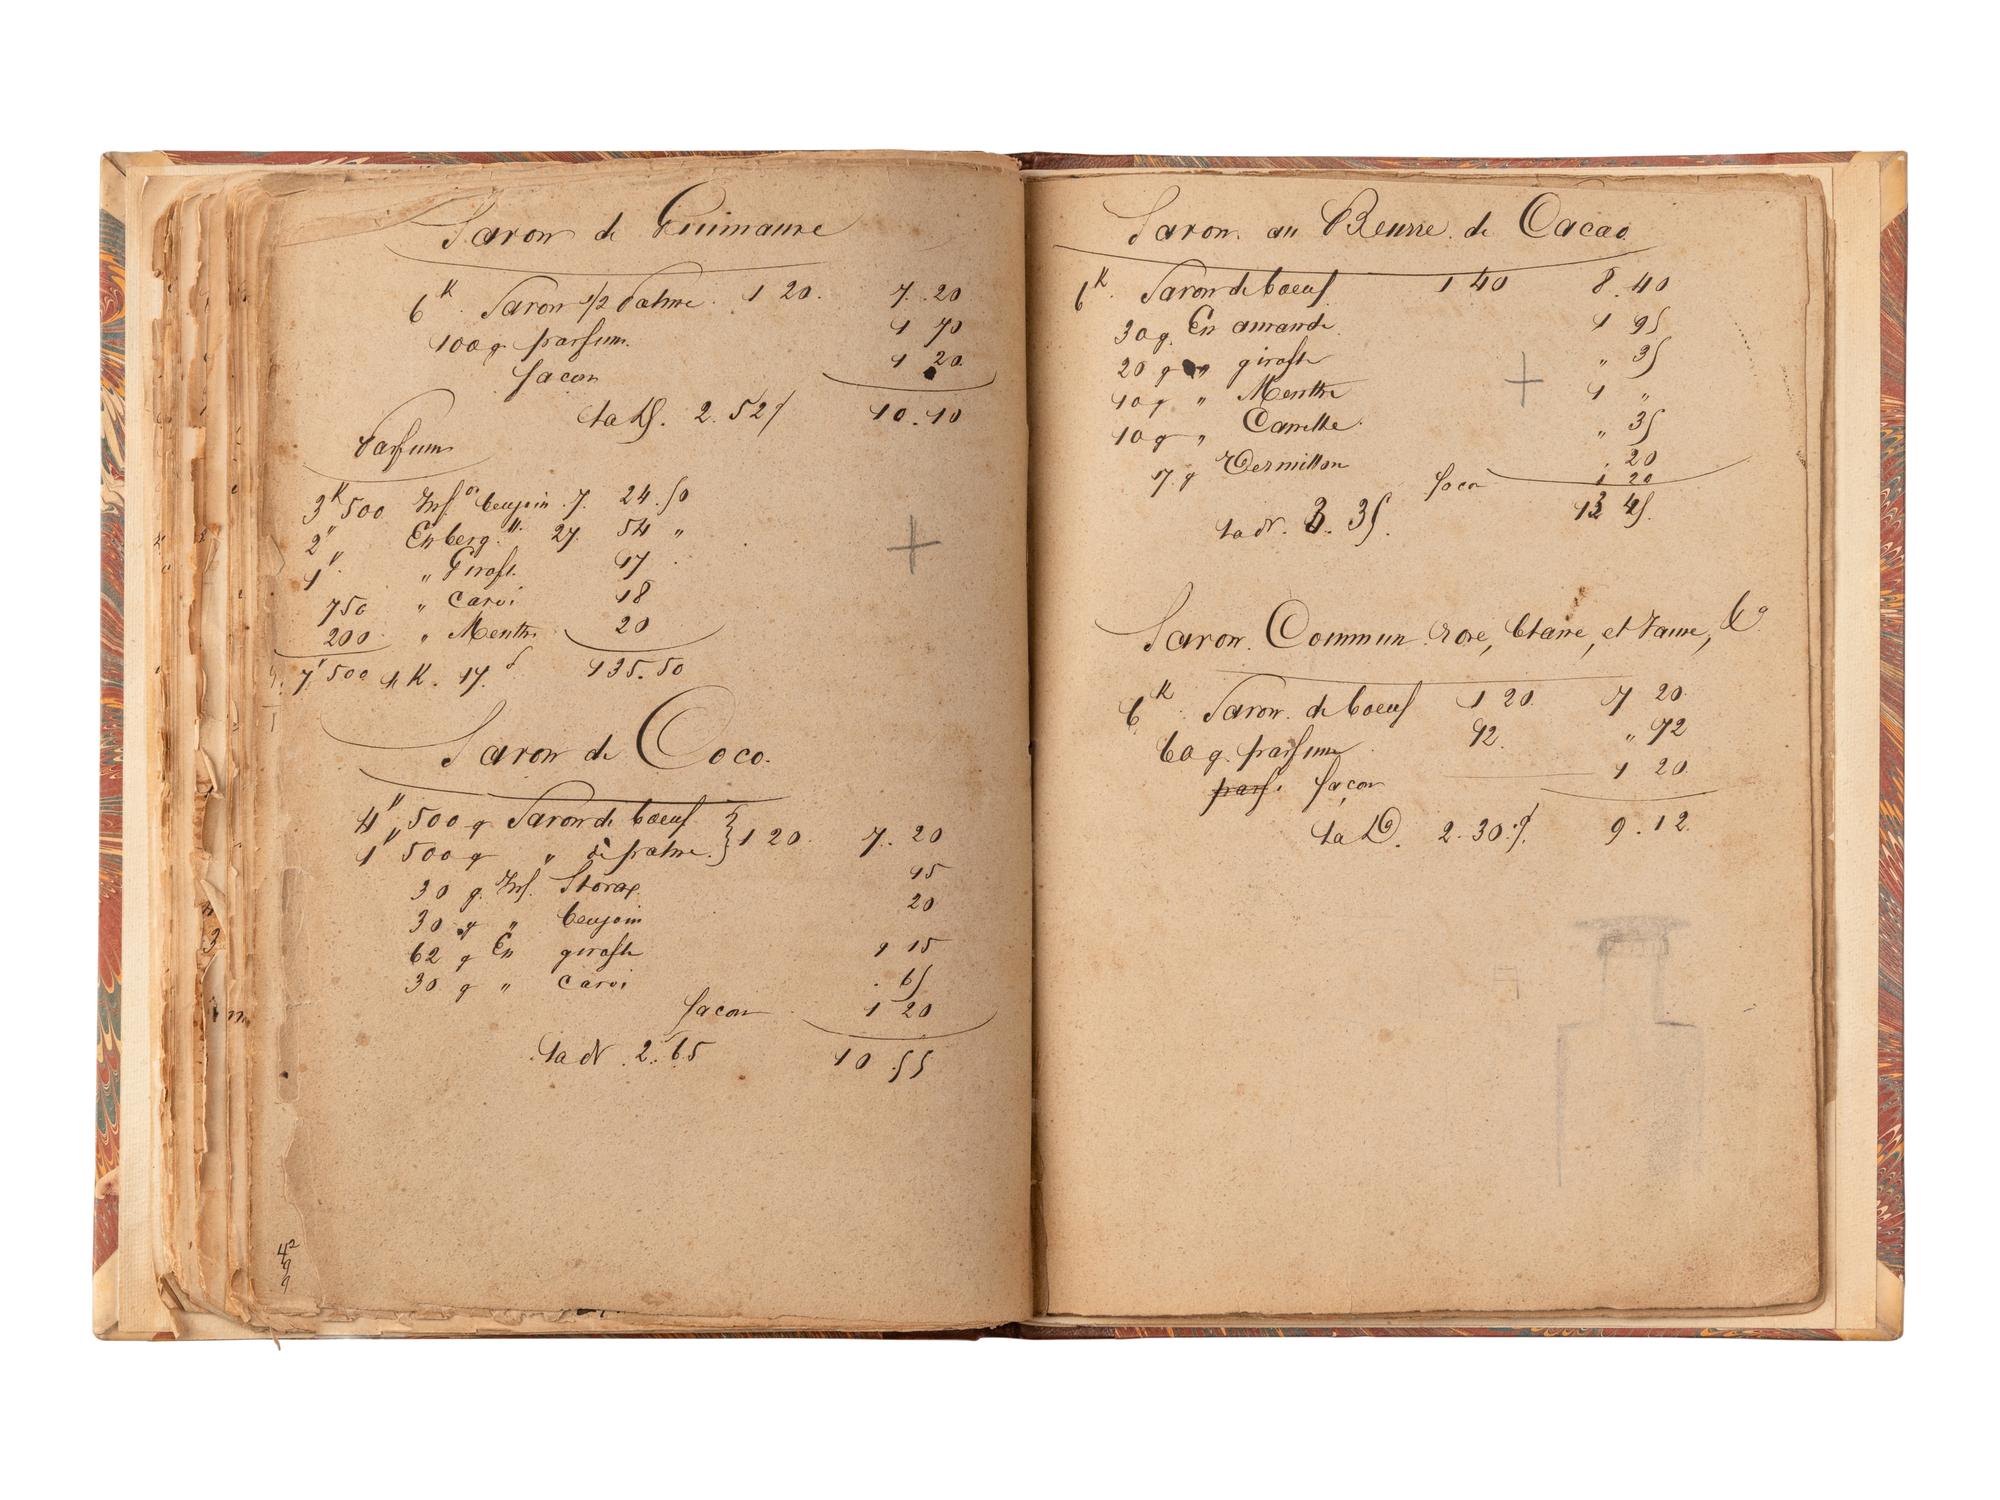 Savon de Guimauve
6K Savon 1/2 Palme. 1 20. 7. 20
100 g parfum. 1 70
façon 1 20.
la Dz. 2. 52 1/2 10. 10
Parfum
3K 500 Inf.on benjoin 7. 24. 50
2" " Es berg. 27 54 "
1" " Girofle 17
750 " Carvi 18
200 " Menthe 20
7K 500 1 K. 17.f 135. 50
Savon de Coco.
4K, 500 g Savon de boeuf } 1 20. 7. 20
1K 500 g " de palme.
30 g. Inf. Storax 15
30 g " benjoin 20
62 g Es girofle 1 15
30 g " Carvi . 65
façon 1 20
la dz 2. 65 10 55
42
9
9
Savon au Beurre de Cacao
6K. Savon de boeuf 1 40 8. 40
30 g. Es amande 1 95
20 g " girofle " 35
10 g " Menthe 1 "
10 g " Canelle " 35
7. g Vermillon . 20
façon 1 20
la dz. 3. 35. 13 45.
Savon Commun rose, blanc, et Jaune, &a
6K. Savon de boeuf 1 20. 7 20
60 g. parfum 92. " 92
parf. façon 1 20.
la Dz. 2. 30. 9. 12.